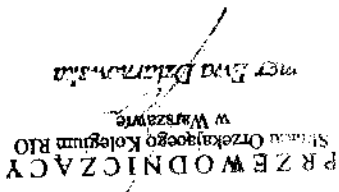 PRZEWODNICZĄCY
Składu Orzekającego Kolegium RIO
w Warszawie
mgr Ewa Dziarnowska